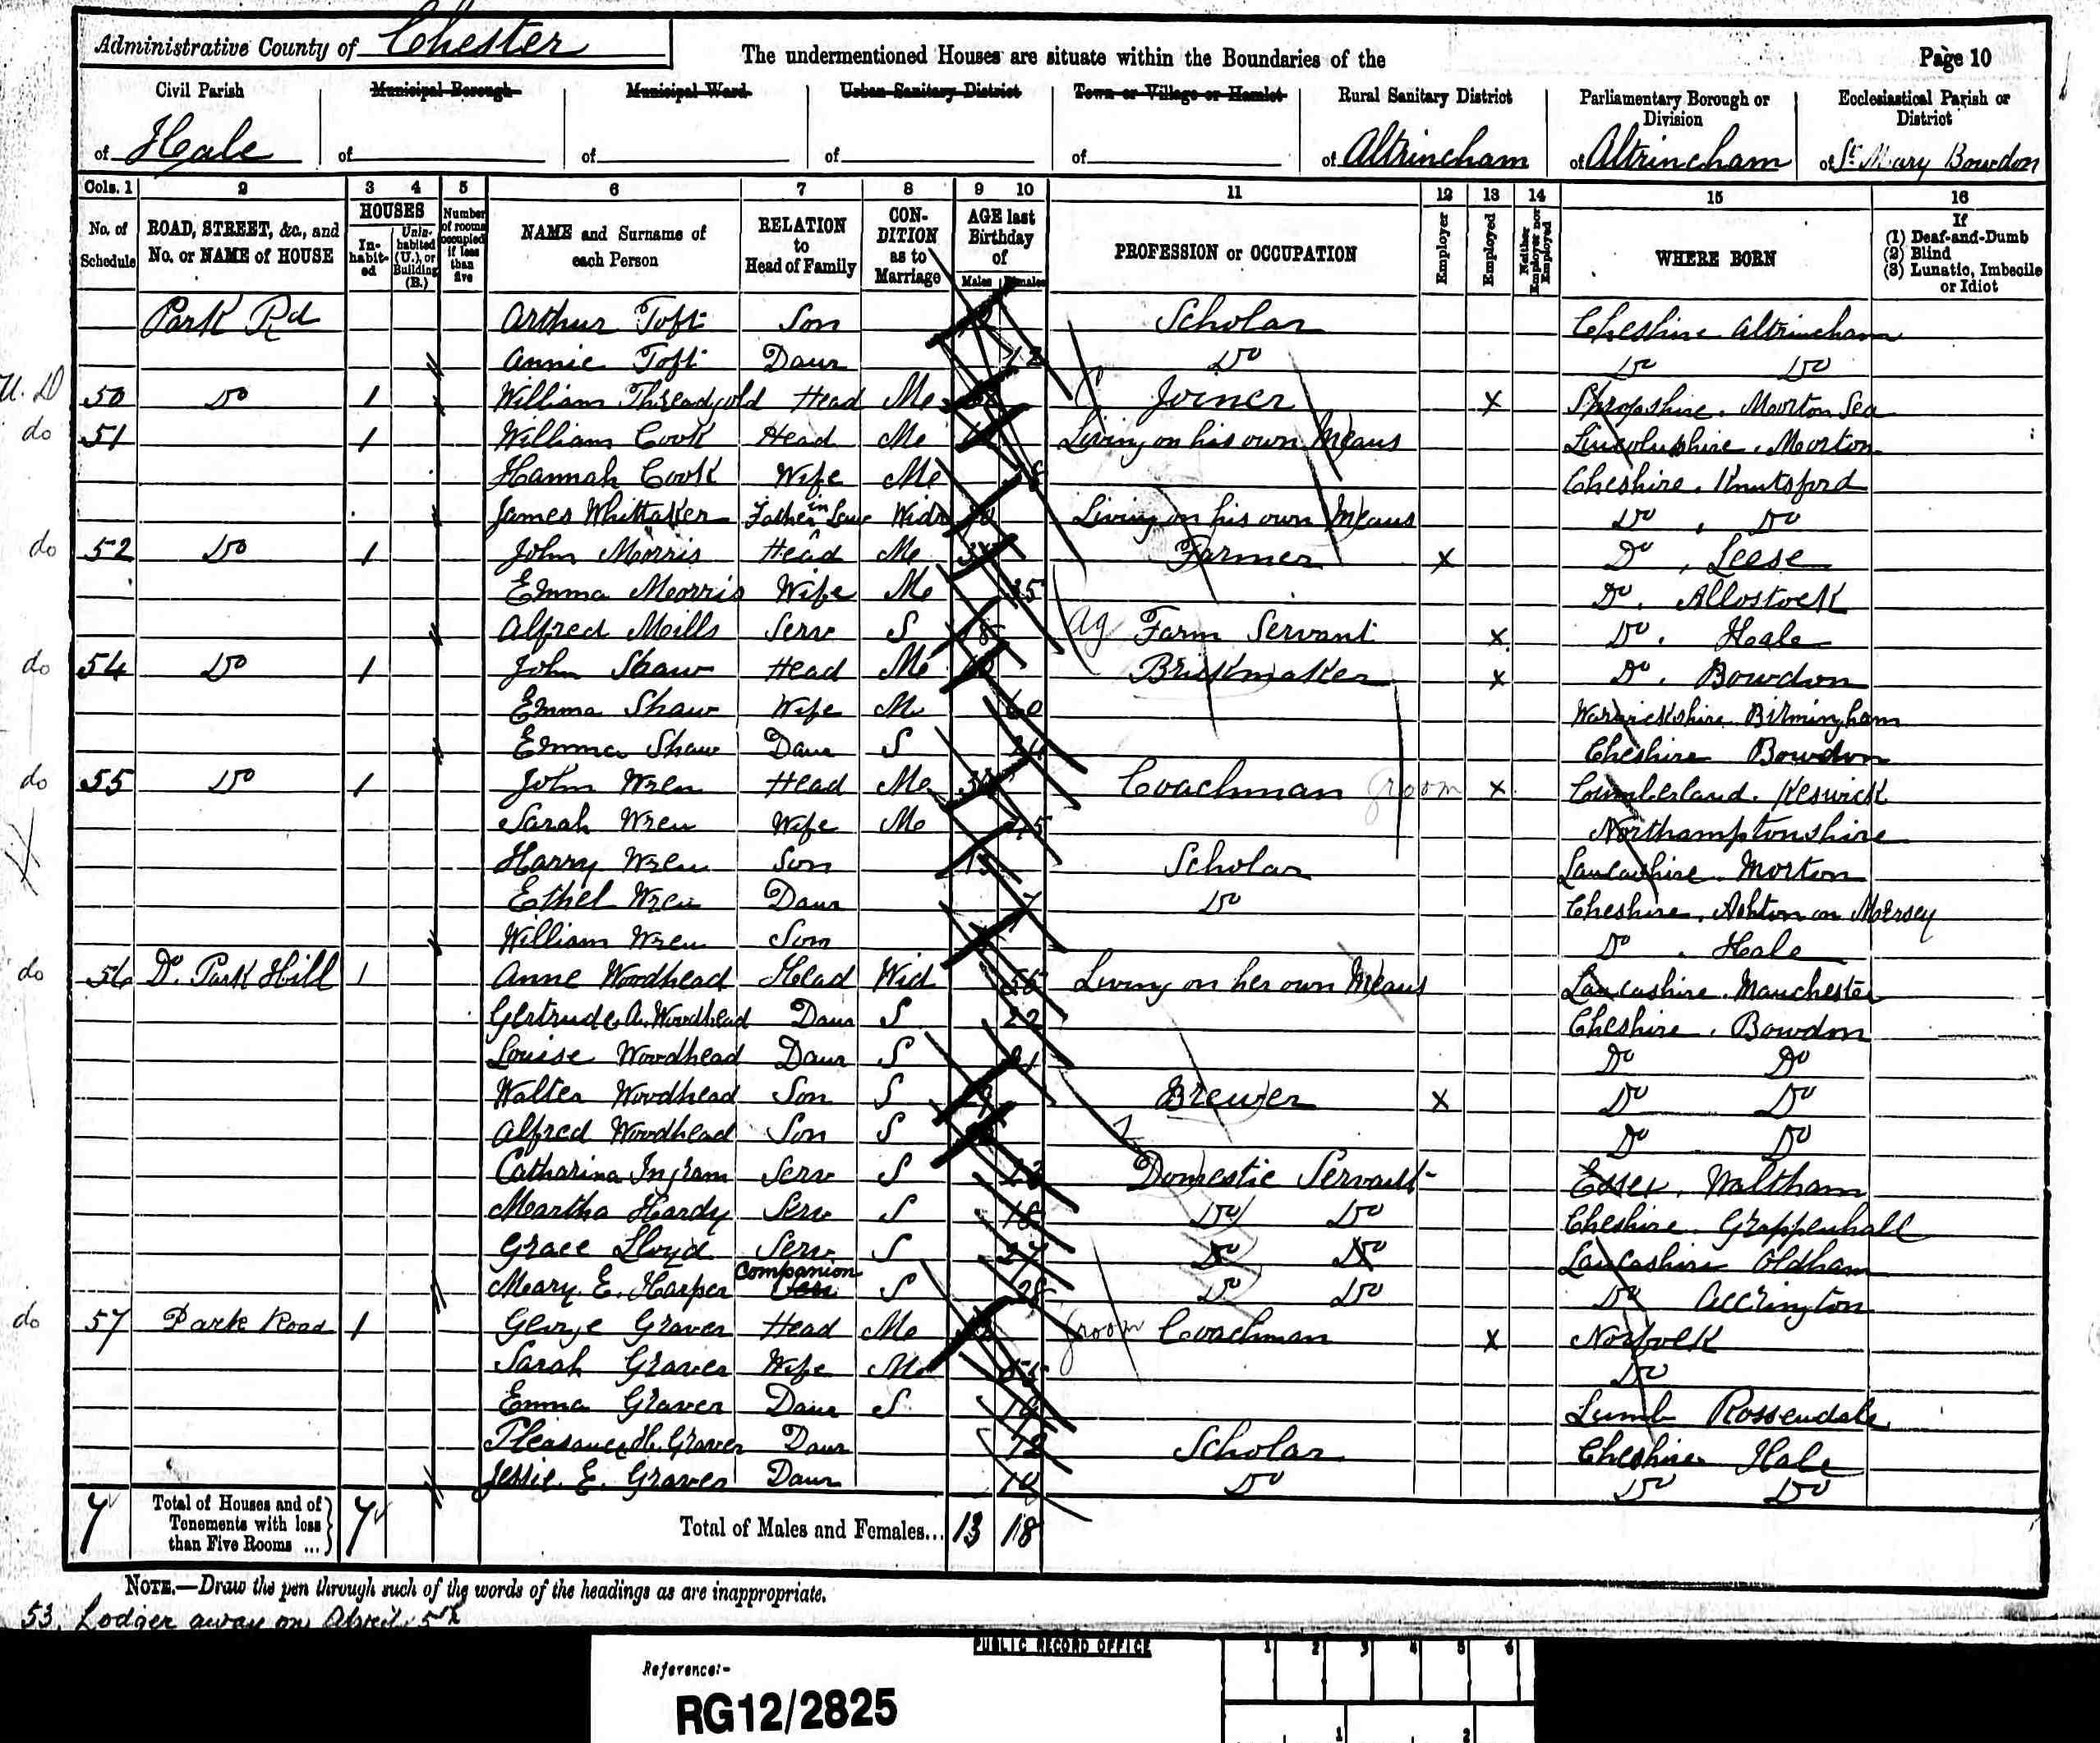 Administrative County of Chester
The undermentioned Houses are situate within the Boundaries of the
Page 10
Civil Parish of Hale
Municipal Borough of
Municipal Ward of
Urban Sanitary District of
Town or Village or Hamlet of
Rural Sanitary District of Altrincham
Parliamentary Borough or Division of Altrincham
Ecclesiastical Parish or District of St Mary Bowdon
Cols. 1 2 3 4 5 6 7 8 9 10 11 12 13 14 15 16
No. of Schedule
ROAD, STREET, &c., and No. or NAME of HOUSE
HOUSES
Inhabited
Uninhabited (U.), or Building (B.)
Number of rooms occupied if less than five
NAME and Surname of each Person
RELATION to Head of Family
CONDITION as to Marriage
AGE last Birthday of
Males Females
PROFESSION or OCCUPATION
Employer
Employed
Neither Employer nor Employed
WHERE BORN
If
(1) Deaf-and-Dumb
(2) Blind
(3) Lunatic, Imbecile or Idiot
Park Rd Arthur Toft Son Scholar Cheshire Altrincham
Annie Toft Daur 12 Do Do Do
50 Do 1 William Threadgold Head M Joiner X Shropshire. Morton Sea
do 51 1 William Cook Head M Living on his own Means Lincolnshire. Morton
Hannah Cook Wife M Cheshire. Knutsford
James Whittaker Father in Law Widr Living on his own Means Do, Do
do 52 Do 1 John Morris Head M Farmer X Do, Leese
Emma Morris Wife M 35 Do. Allostock
Alfred Mills Serv S 18 Ag Farm Servant X Do. Hale
do 54 Do 1 John Shaw Head M Brickmaker X Do. Bowdon
Emma Shaw Wife M 60 Warwickshire Birmingham
Emma Shaw Daur S Cheshire Bowdon
do 55 Do 1 John Wren Head M Coachman groom X Cumberland. Keswick
Sarah Wren Wife M Northamptonshire
Harry Wren Son Scholar Lancashire. Morton
Ethel Wren Daur 7 Do Cheshire. Ashton on Mersey
William Wren Son Do. Hale
do 56 Do. Park Hill 1 Anne Woodhead Head Wid Living on her own Means Lancashire. Manchester
Gertrude A. Woodhead Daur S 22 Cheshire. Bowdon
Louise Woodhead Daur S 21 Do Do
Walter Woodhead Son S Brewer X Do Do
Alfred Woodhead Son S Do Do
Catharina Ingram Serv S 23 Domestic Servant Essex. Waltham
Martha Hardy Serv S 18 Do Do Cheshire. Grappenhall
Grace Lloyd Serv S 27 Do Do Lancashire Oldham
Mary. E. Harper Companion S 28 Do Do Do Accrington
do 57 Park Road 1 George Graver Head M groom Coachman X Norfolk
Sarah Graver Wife M Do
Emma Graver Daur S Lumb Rossendale
Pleasance H. Graver Daur 12 Scholar Cheshire Hale
Jessie. E. Graver Daur 10 Do Do Do
7 Total of Houses and of Tenements with less than Five Rooms ... 7 Total of Males and Females... 13 18
NOTE.—Draw the pen through such of the words of the headings as are inappropriate.
53. Lodger away on April 5th
PUBLIC RECORD OFFICE
1 2 3 4 5 6
Reference:-
RG12/2825
1 2